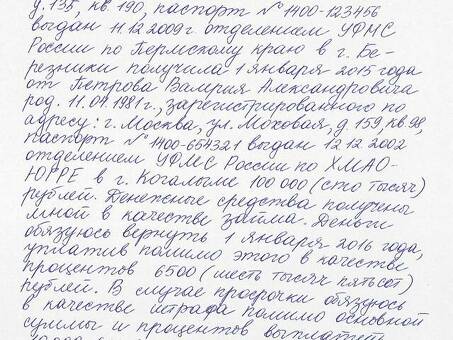 д. 135, кв. 190, паспорт № 1400-123456
выдан 11.12.2009г отделением УФМС
России по Пермскому краю в г. Бе-
резники получила 1 января 2015 года
от Петрова Валерия Александровича
род. 11.04.1981г., зарегистрированного по
адресу: г. Москва, ул. Моховая, д. 159, кв. 98,
паспорт № 1400-654321 выдан 12.12.2002
отделением УФМС России по ХМАО-
ЮГРЕ в г. Когалыме 100 000 (сто тысяч)
рублей. Денежные средства получены
мной в качестве займа. Деньги
обязуюсь вернуть 1 января 2016 года,
уплатив помимо этого в качестве
процентов 6500 (шесть тысяч пятьсот)
рублей. В случае просрочки обязуюсь
в качестве штрафа помимо основной
суммы и процентов выплатить